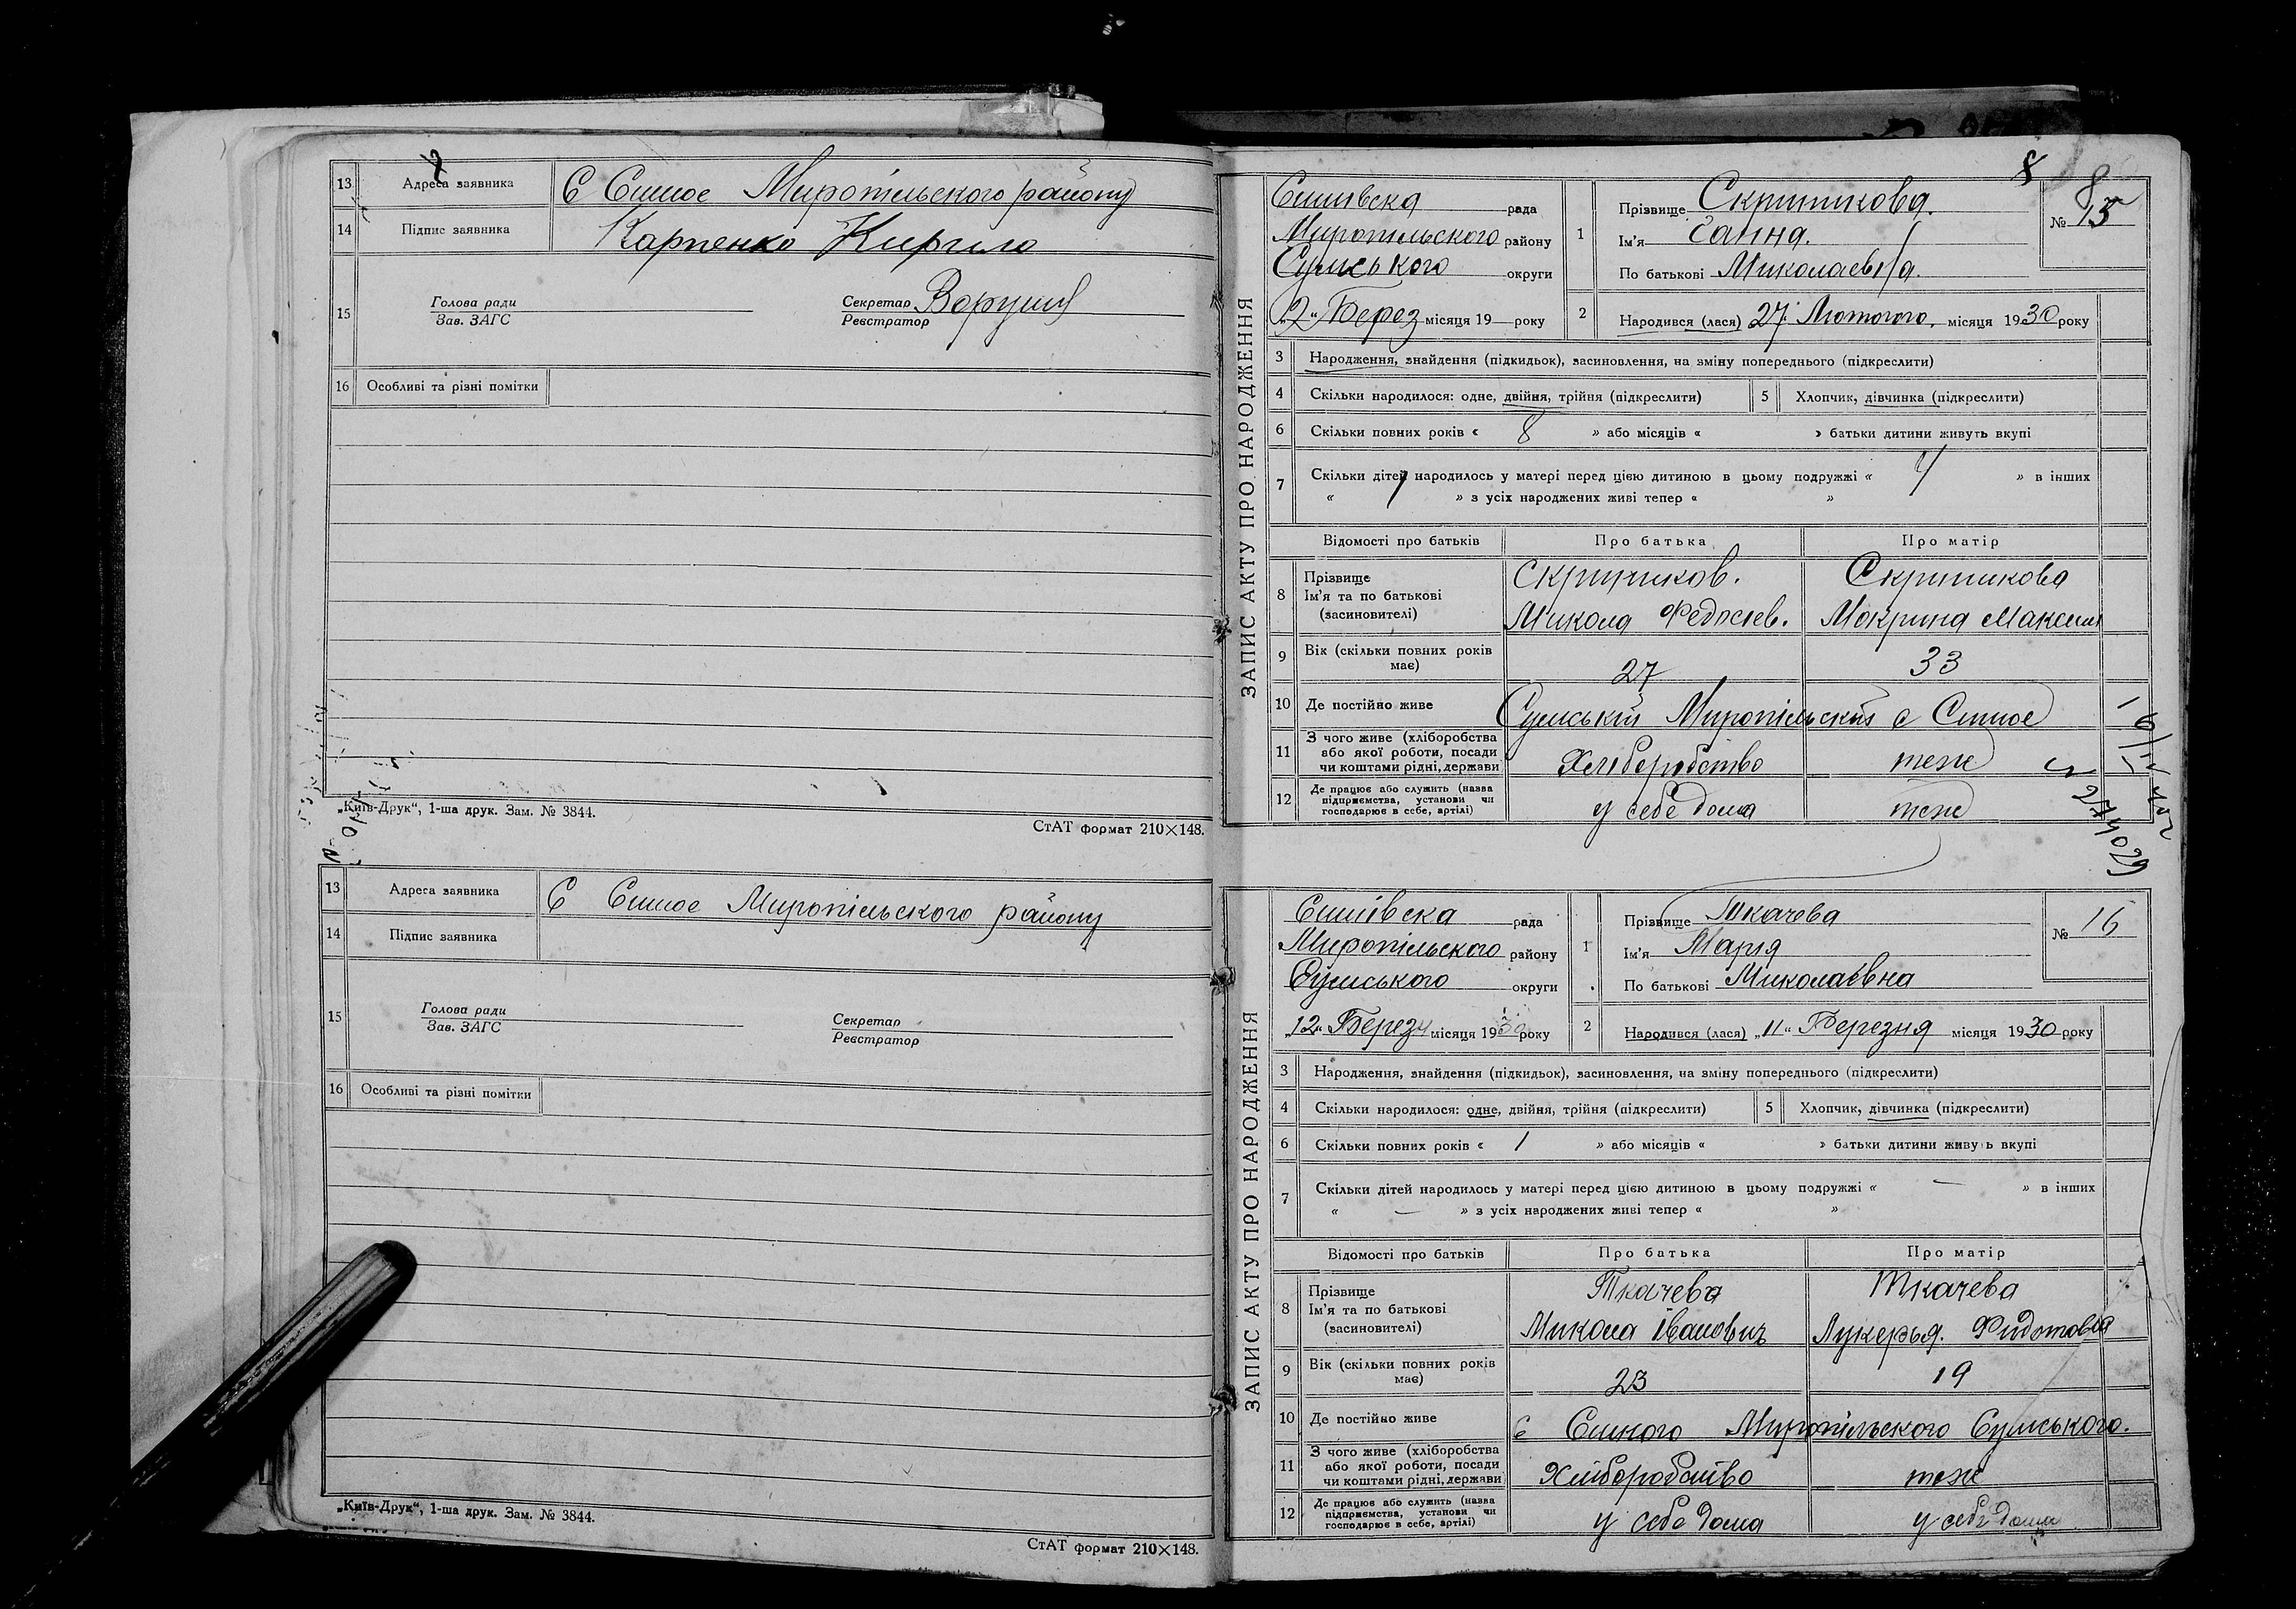 13 Адреса заявника С Синное Миропільского району
14 Підпис заявника Карпенко Кирило
15 Голова ради Секретар
Зав. ЗАГС Реєстратор
16 Особливі та різні помітки
„Київ-Друк“, 1-ша друк. Зам. № 3844.
СтАТ формат 210×148.
13 Адреса заявника С Синное Миропільского району
14 Підпис заявника
15 Голова ради Секретар
Зав. ЗАГС Реєстратор
16 Особливі та різні помітки
„Київ-Друк“, 1-ша друк. Зам. № 3844.
СтАТ формат 210×148.
8
ЗАПИС АКТУ ПРО НАРОДЖЕННЯ
рада
Миропільского району
Сумського округи
12 Берез місяця 19 року
1 Прізвище
Ім'я Ганна.
По батькові Миколаевна.
№ 15
2 Народився (лася) 27 Лютого, місяця 1930 року
3 Народження, знайдення (підкидьок), засиновлення, на зміну попереднього (підкреслити)
4 Скільки народилося: одне, двійня, трійня (підкреслити) 5 Хлопчик, дівчинка (підкреслити)
6 Скільки повних років « 8 » або місяців « » батьки дитини живуть вкупі
7 Скільки дітей народилось у матері перед цією дитиною в цьому подружжі « 4 » в інших
« 1 » з усіх народжених живі тепер « »
Відомості про батьків Про батька Про матір
8 Прізвище
Ім'я та по батькові Микола Федосієв. Мокрина Максим
(засиновителі)
9 Вік (скільки повних років має) 27 33
10 Де постійно живе Сумський Миропільский с Синное
11 З чого живе (хліборобства або якої роботи, посади чи коштами рідні, держави Хліборобство теж
12 Де працює або служить (назва підприємства, установи чи господарює в себе, артілі) у себе дома теж
ЗАПИС АКТУ ПРО НАРОДЖЕННЯ
рада
Миропільского району
Сумського округи
„12“ Березн місяця 1930 року
1 Прізвище Ткачева
Ім'я Марія
По батькові Миколаєвна
№ 16
2 Народився (лася) „11“ Березня місяця 1930 року
3 Народження, знайдення (підкидьок), засиновлення, на зміну попереднього (підкреслити)
4 Скільки народилося: одне, двійня, трійня (підкреслити) 5 Хлопчик, дівчинка (підкреслити)
6 Скільки повних років « 1 » або місяців « » батьки дитини живуть вкупі
7 Скільки дітей народилось у матері перед цією дитиною в цьому подружжі « — » в інших
« — » з усіх народжених живі тепер « »
Відомості про батьків Про батька Про матір
8 Прізвище Ткачева Ткачева
Ім'я та по батькові Микола Іванович Лукерья. Фидотовна
(засиновителі)
9 Вік (скільки повних років має) 23 19
10 Де постійно живе с Синного Миропільского Сумського.
11 З чого живе (хліборобства або якої роботи, посади чи коштами рідні, держави Хліборобство теж
12 Де працює або служить (назва підприємства, установи чи господарює в себе, артілі) у себе дома у себе дома